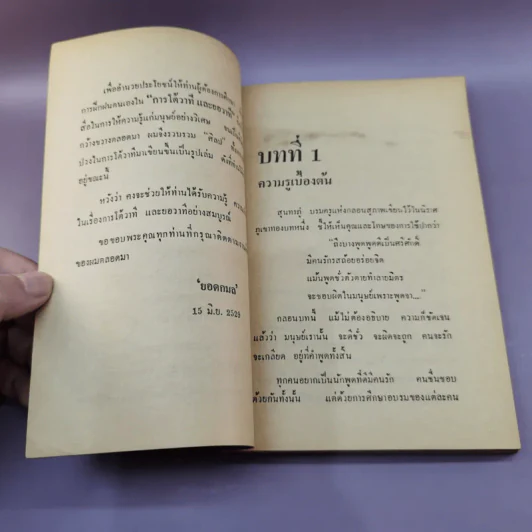 เพื่ออำนวยประโยชน์ให้ท่านผู้ต้องการศึกษา
การฝึกฝนตนเองใน "การโต้วาที และยอวาที"
สื่อในการให้ความรู้แก่มนุษย์อย่างวิเศษ
กว้างขวางตลอดมา ผมจึงรวบรวม "ศิลป
ปรงในการโต้วาทีมาเขียนขึ้นเป็นรูปเล่ม ดังที่
อยู่ขณะนี้
หวังว่า คงจะช่วยให้ท่านได้รับความรู้
ในเรื่องการโต้วาที และยอวาทีอย่างสมบูรณ์
ขอขอบพระคุณทุกท่านที่กรุณาติดตาม
ของผมตลอดมา
'ยอดกมล'
15 มิ.ย. 2529
บทที่ 1
ความรู้เบื้องต้น
สุนทรภู่ บรมครูแห่งกลอนสุภาพเขียนไว้ในนิราศ
ภูเขาทองบทหนึ่ง ชี้ให้เห็นคุณและโทษของการใช้ปากว่า
"ถึงบางพูดพูดดีเป็นศรีศักดิ์
มีคนรักรสถ้อยอร่อยจิต
แม้นพูดชั่วตัวตายทำลายมิตร
จะชอบผิดในมนุษย์เพราะพูดจา..."
กลอนบทนี้ แม้ไม่ต้องอธิบาย ความก็ชัดเจน
แล้วว่า มนุษย์เรานั้น จะดีชั่ว จะผิดจะถูก คนจะรัก
จะเกลียด อยู่ที่คำพูดทั้งสิ้น
ทุกคนอยากเป็นนักพูดที่ดีมีคนรัก คนชื่นชอบ
ด้วยกันทั้งนั้น แต่ด้วยการศึกษาอบรมของแต่ละคน